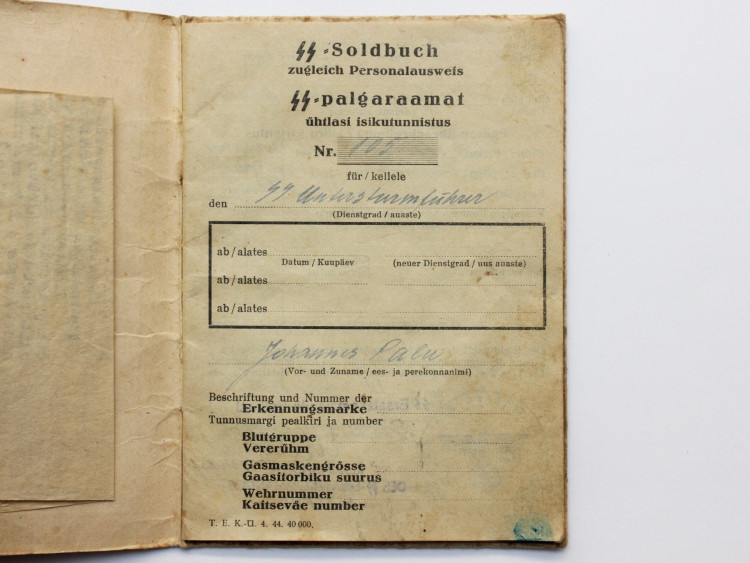 ᛋᛋ-Soldbuch
zugleich Personalausweis
ᛋᛋ-palgaraamat
ühtlasi isikutunnistus
Nr. 105
für / kellele
den ᛋᛋ-Untersturmführer
(Dienstgrad / auaste)
ab / alates
Datum / Kuupäev (neuer Dienstgrad / uus auaste)
ab / alates
ab / alates
Johannes Palu
(Vor- und Zuname / ees- ja perekonnanimi)
Beschriftung und Nummer der
Erkennungsmarke
Tunnusmargi pealkiri ja number
Blutgruppe
Vererühm
Gasmaskengrösse
Gaasitorbiku suurus
Wehrnummer
Kaitseväe number
T. E. K.-Ü. 4. 44. 40 000.